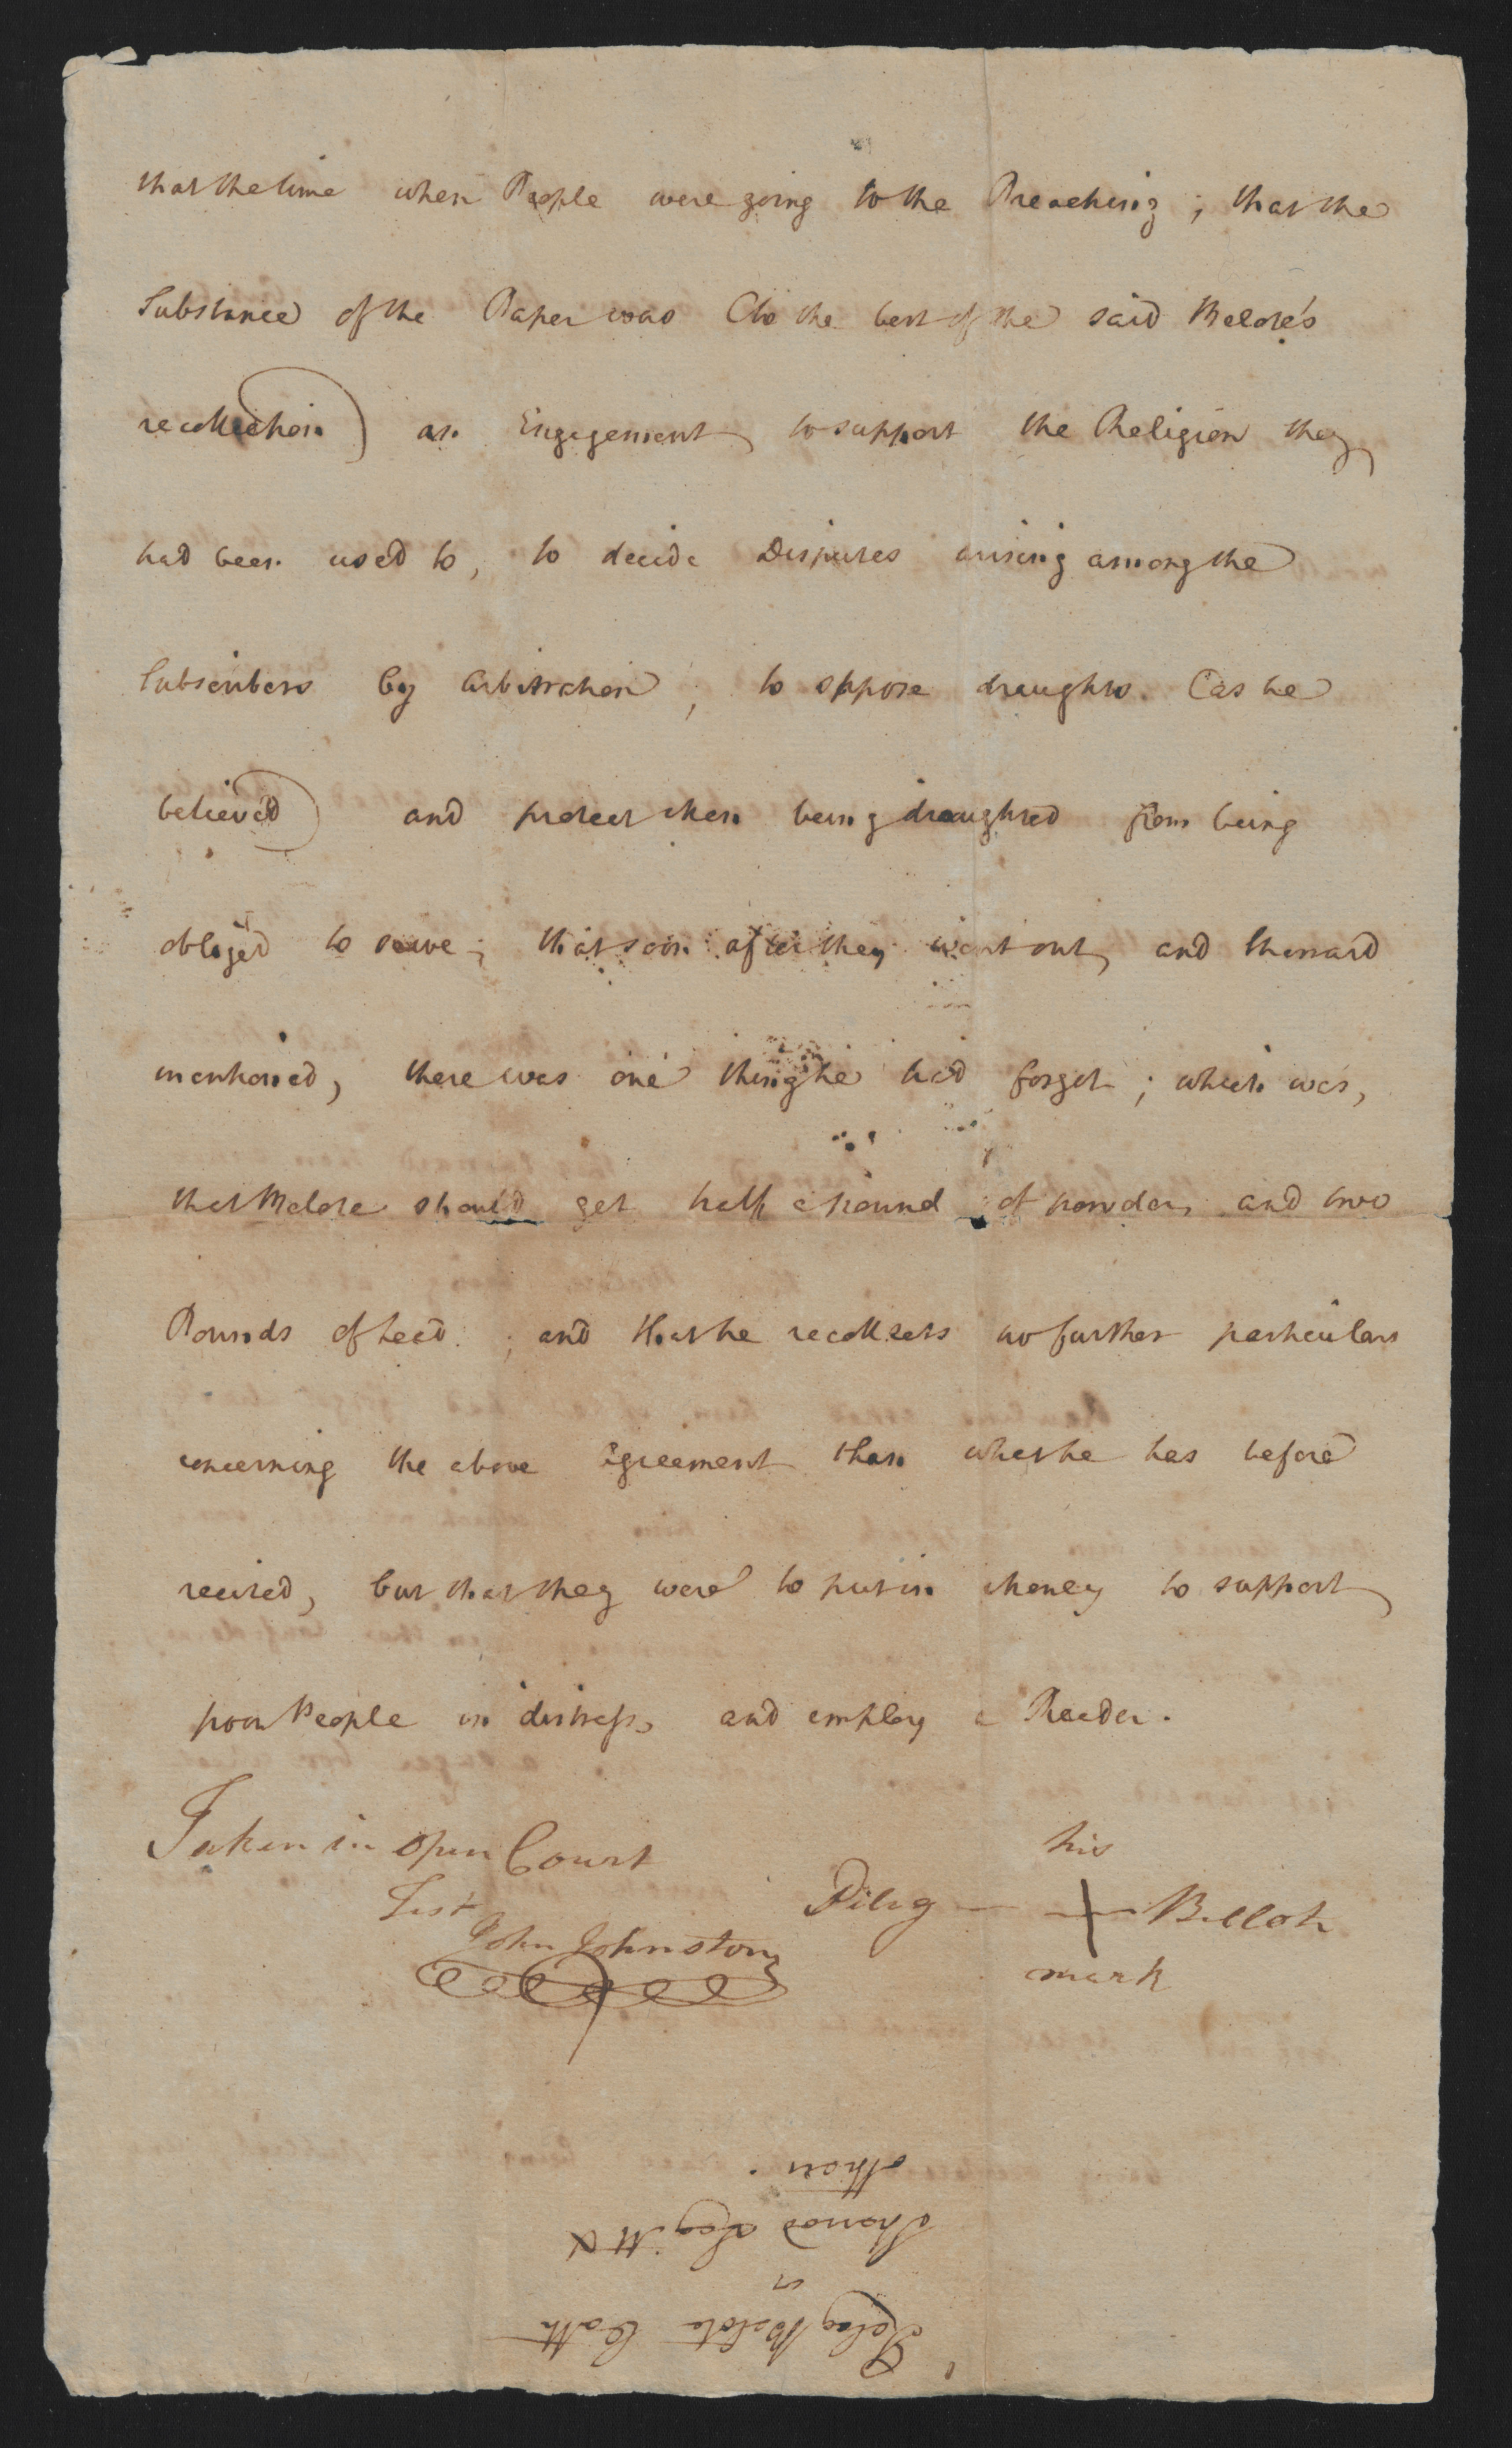 that the time when People were going to the Preaching; that the
Substance of the Paper was (to the best of the said Belote's
recollection) an Engagement to support the Religion they
had been used to, to decide Disputes arising among the
Subscribers by arbitration; to oppose draughts (as he
believed) and protect Men being draughted from being
obliged to serve; that soon after they went out, and Thos said
mentioned, there was one thing he had forgot; which was,
that Belote should get half a pound of powder, and two
Pounds of Lead; and that he recollects no further particulars
concerning the above Agreement than what he has before
recited, but that they were to put in Money to support
poor People in distress, and employ a Reader.
Taken in Open Court
Test
John Johnston
his
Pileg + Bellote
mark
Peleg Belote Oath
vs
Thomas Legitt &
others.